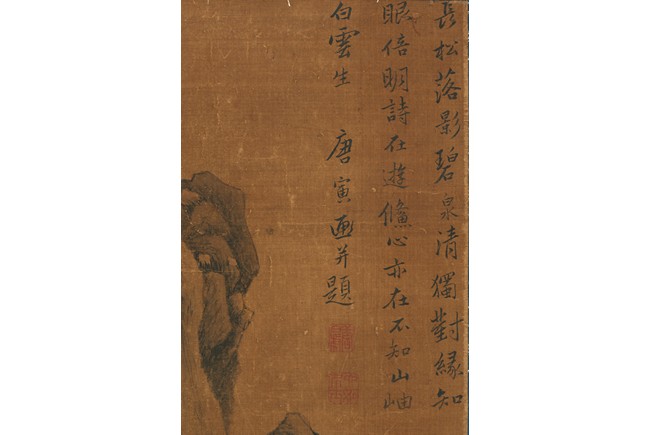 長松落影碧泉清獨對緣知
眼倍明詩在遊鯈心亦在不知山岫
白雲生 唐寅畫并題